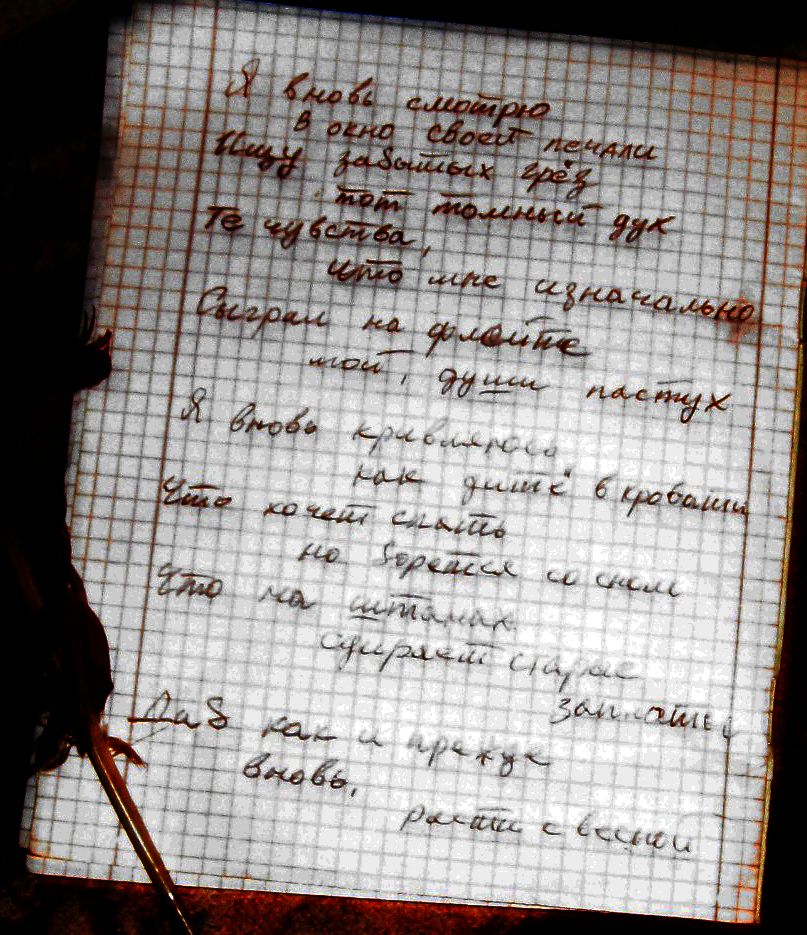 Я вновь смотрю
в окно своей печали
Ищу забытых грёз
тот томный дух
Те чувства,
что мне изначально
Сыграл на флейте
мой, души пастух
Я вновь кривляюсь
как дитё в кровати
Что хочет спать
но борется со сном
Что на штанах
сдирает старые
заплатки
Даб как и прежде
вновь,
расти с весной